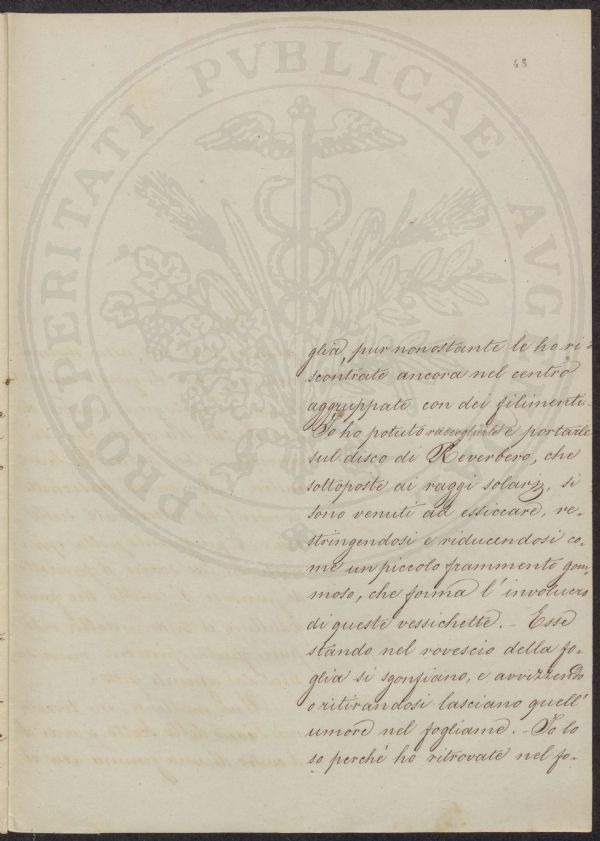 48
PROSPERITATI PVBLICAE AVG
glia, pur nonostante le ho ri=
scontrate ancora nel centro
aggruppate con dei filimenti.-
Io ho potuto raccoglierle e portarle
sul disco di Reverbero, che
sottoposte ai raggi solarj, si
sono venuti ad essiccare, re-
stringendosi e riducendosi co-
me un piccolo frammento gom-
moso, che forma l'involucro
di queste vessichette.- Esse
stando nel rovescio della fo-
glia si sgonfiano, e avvizzendo
o ritirandosi lasciano quell'
umore nel fogliame.- Io lo
so perché ho ritrovate nel fo-